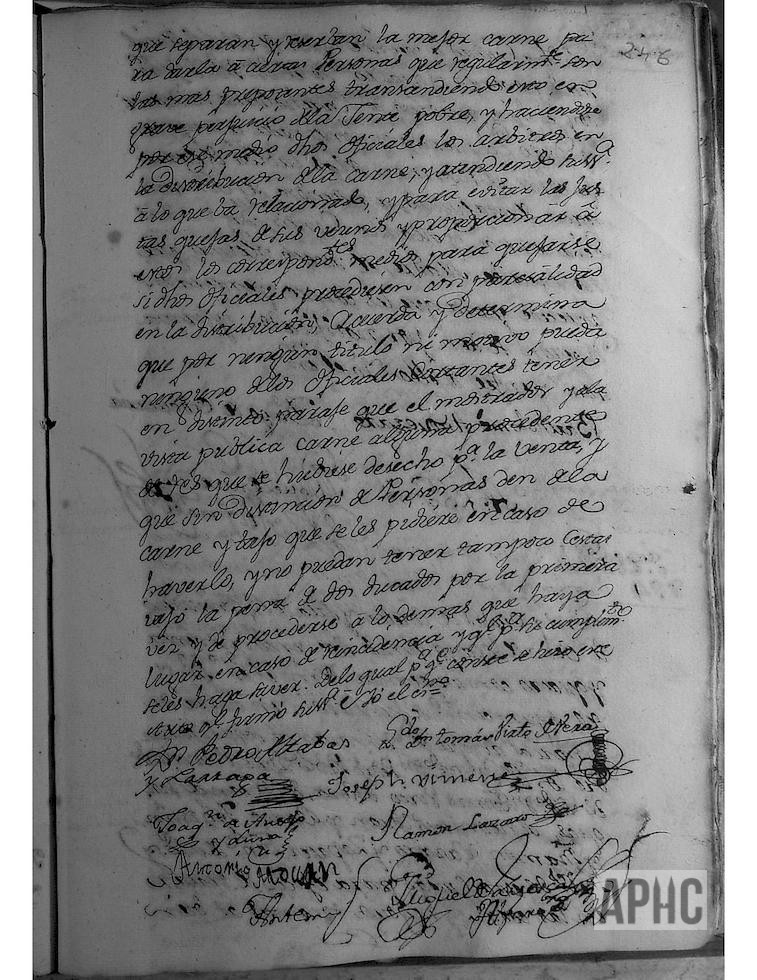 246
que separan y reserban la mejor carne pa
ra darla â ciertas Personas que regularmte. son
las mas pudientes transcendiendo esto en
grave perjuicio dela Jente pobre, y haciendose
por este medio dhos oficiales los arbitros en
la distribucion dela carne, y atendiendo su Sª.
â lo que ba relacionado, y para evitar las jus
tas quejas de sus vecinos y proporcionar â
estos los correspondtes medios para quejarse
si dhos oficiales procediesen con parcialidad
en la distribucion, Acuerda y determina
que por ningun titulo ni motivo pueda
ninguno delos oficiales Cortantes tener
en distinto paraje que el mostrador y ala
vista publica carne alguna procedente
de res que se hubiese desecho pª. la venta, y
que sin distincion de Personas den dela
carne y tajo que se les pidiere en caso de
haverlo, y no puedan tener tampoco cestas
vajo la pena de dos ducados por la primera
vez y de procederse â lo demas que haya
lugar en caso de reincidencia y qe. pª. su cumplimto.
se les haga saver. Delo qual pª. qe. conste se hizo este
Auto qe. firmó su Sª. è Yo el Essno.
Dn. Pedro Altabas
y Larrapa
Ldo. Dn. Tomás Pinto de Vera
Joseph Ximenez
Joaqn. de Ansejo
y Luna
Ramon Lazaro
Antonio Molin
Antemy
Miguel
APHC